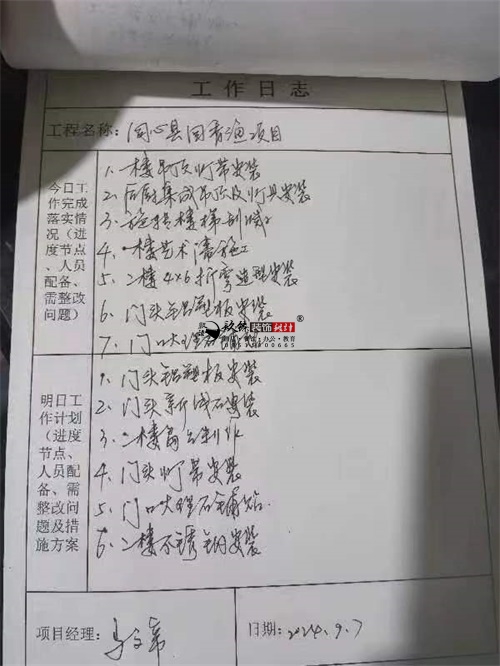 工作日志
工程名称: 同心县回香渔项目
今日工作完成落实情况(进度节点、人员配备、需整改问题)
1. 一楼吊顶灯带安装
2. 后厨集成吊顶及灯具安装
3. 旋转楼梯
4. 一楼艺术漆施工
5. 二楼4×6折弯造型安装
6. 门头铝塑板安装
7. 门口大理石
装饰设计®
明日工作计划(进度节点、人员配备、需整改问题及措施方案
1. 门头铝塑板安装
2. 门头 安装
3. 二楼
4. 门头灯带安装
5. 门口大理石铺贴
6. 二楼不锈钢安装
项目经理:
日期: 2024.9.7